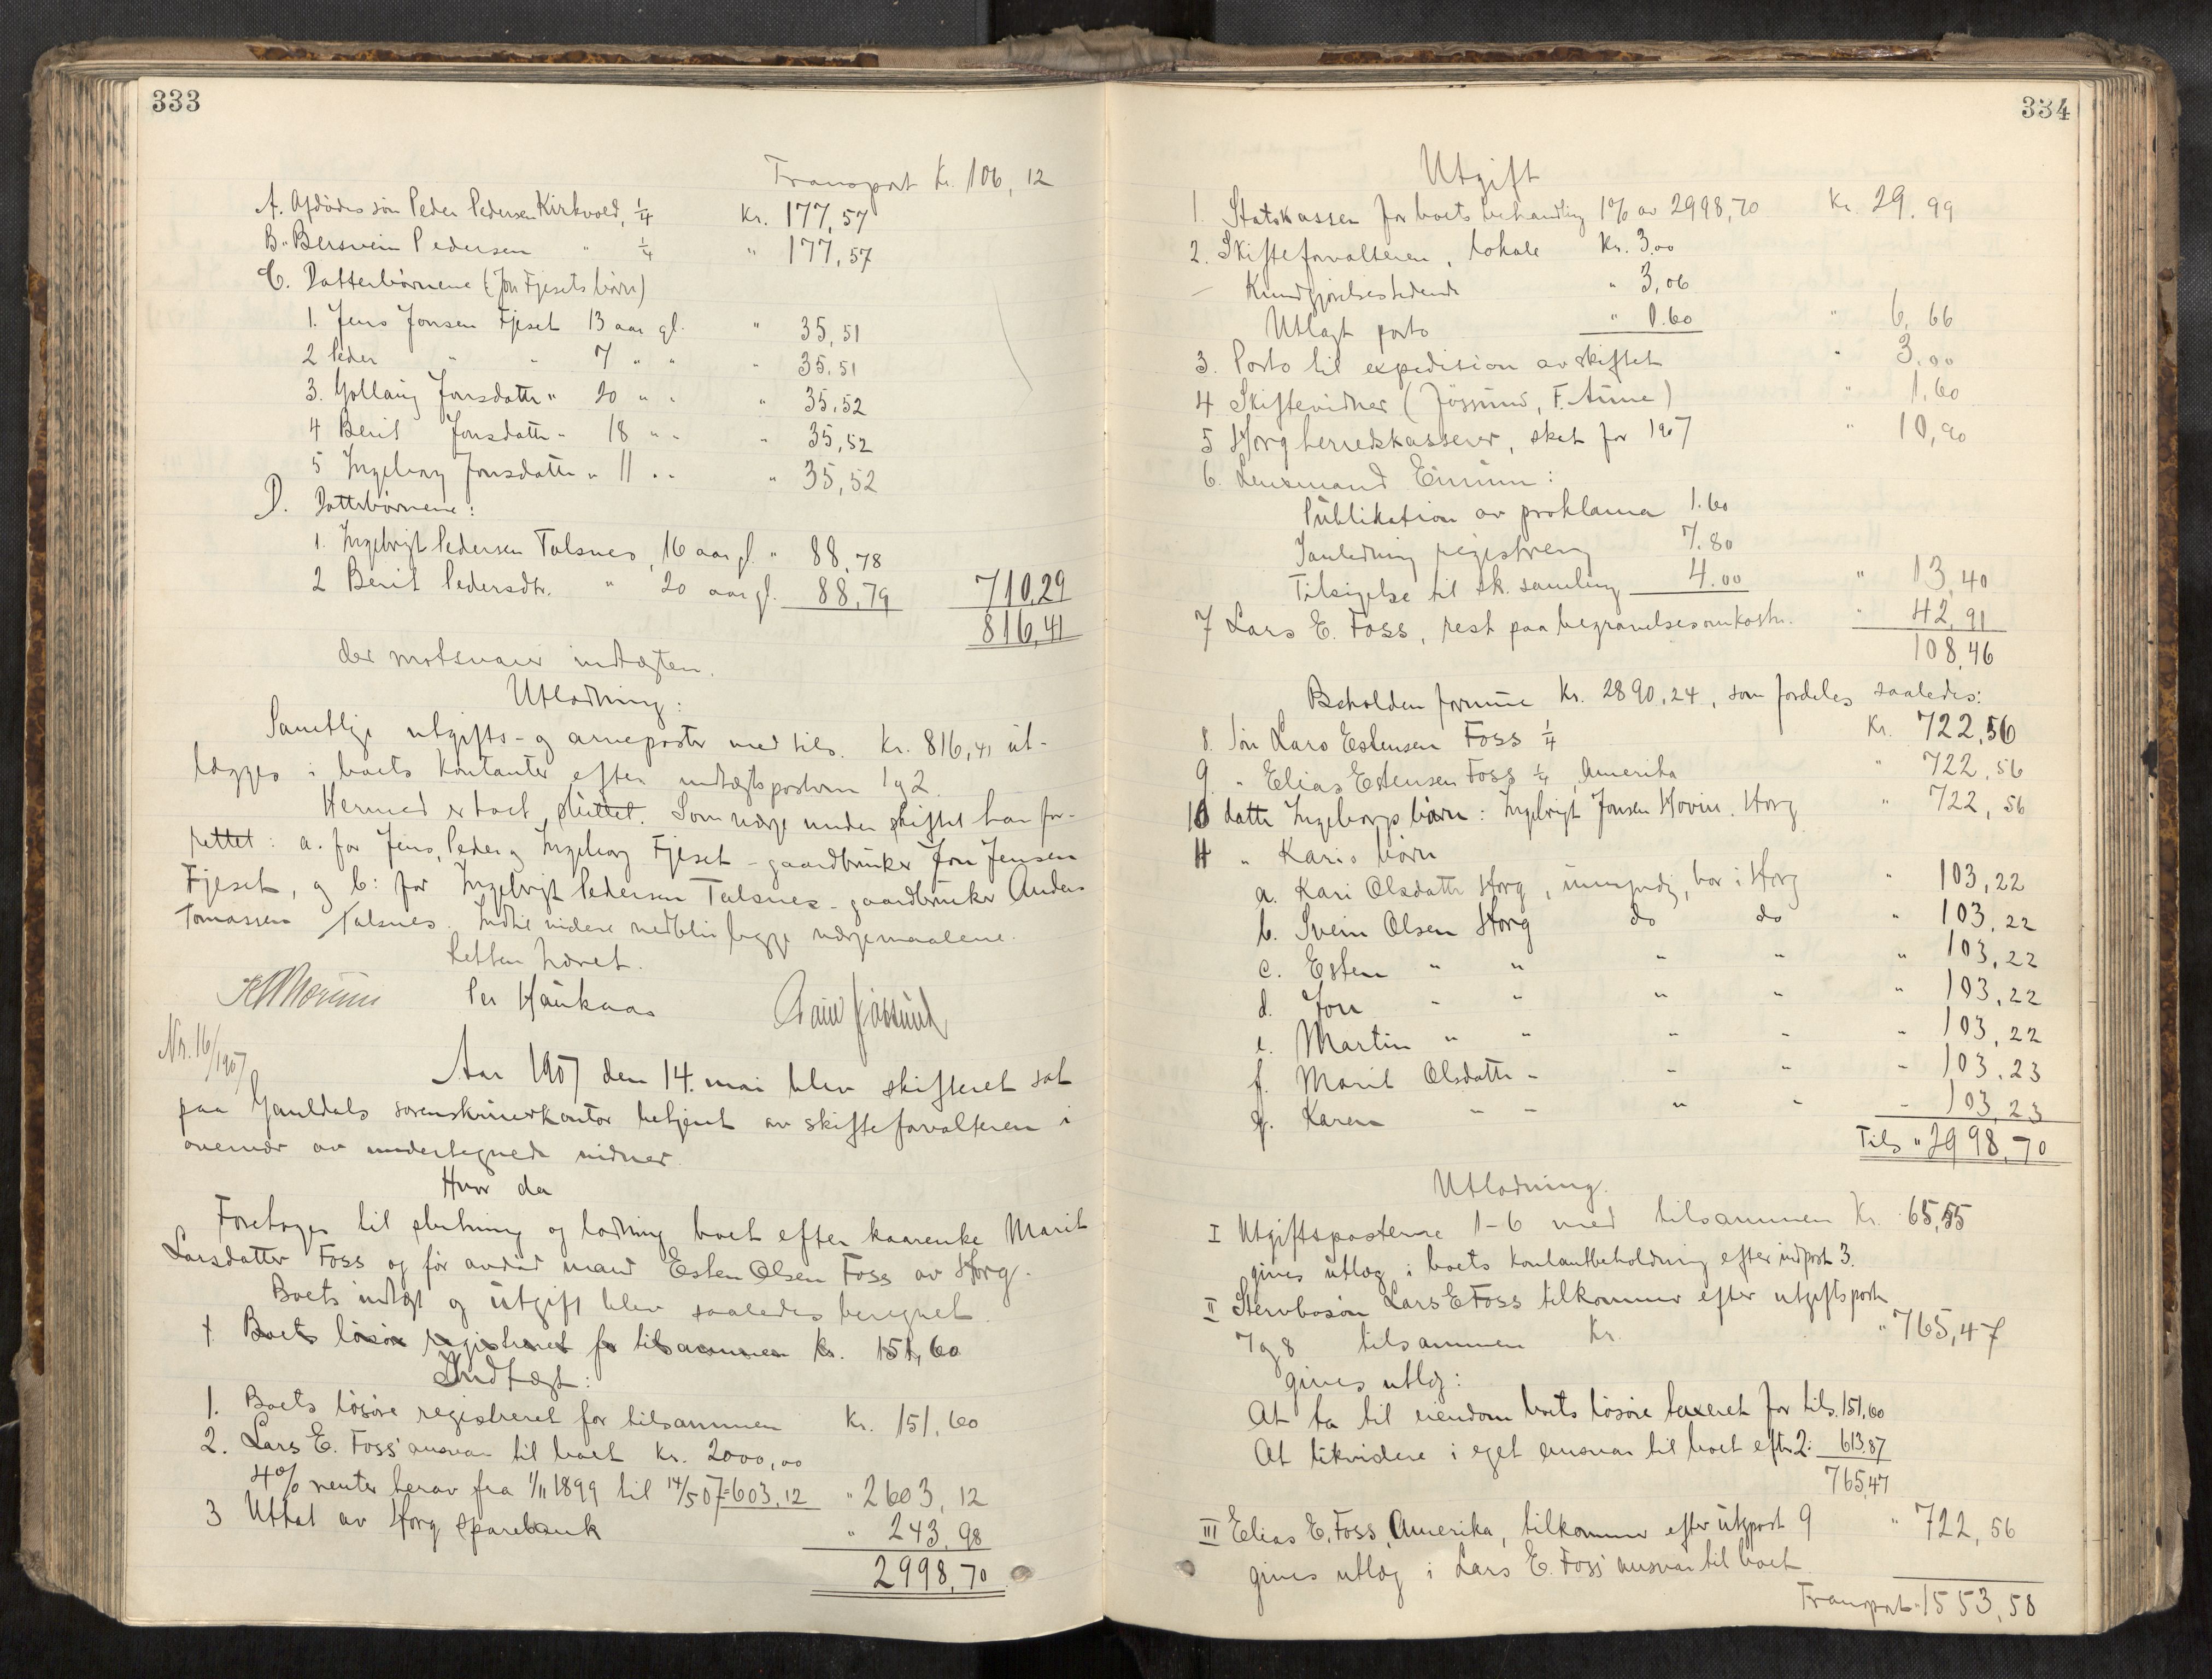 333
Transport Kr. 106,12
A. Afdödes sön Peder Pedersen Kirkvold, 1/4 Kr. 177,57
B. " Bersvein Pedersen " 1/4 " 177,57
C. Datterbørnene (Jon Fjesets børn)
1. Jens Jonsen Fjeset 13 aar gl. " 35,51
2 Peder " " 7 " " " 35,51
3. Gollaug Jonsdatter " 20 " " " 35,52
4 Berit Jonsdatter " 18 " " " 35,52
5 Ingeborg Jonsdatter " 11 " " " 35,52
D. Datterbørnene:
1. Ingebrigt Pedersen Talsnes, 16 aar gl. " 88,78
2 Berit Pedersdtr. " 20 aar gl. 88,79 710,29
816,41
der motsvarer indtægten.
Utlodning:
Samtlige utgifts- og arveposter med tils. Kr. 816,41 ut-
lægges i boets kontanter efter indtægtsposterne 1 og 2.
Hermed er boet sluttet. Som værge under skiftet har for-
rettet: a. for Jens, Peder og Ingeborg Fjeset - gaardbruker Jon Jensen
Fjeset, og b: for Ingebrigt Pedersen Talsnes - gaardbruker Anders
Tomassen Talsnes. Indtil videre vedblir begge værgemaalene.
Retten hævet.
Per Haukaas
Nr. 16/1907
Aar 1907 den 14. mai blev skifteret sat
paa Gauldals sorenskriverkontor betjent av skifteforvalteren i
overvær av undertegnede vidner.
Hvor da
Foretoges til slutning og lodning boet efter kaarenke Marit
Larsdatter Foss og før avdød mand Esten Olsen Foss av Horg.
Boets indtægt og utgift blev saaledes beregnet.
1 Boets løsøre registreret for tilsammen kr. 151,60
Indtægt:
1. Boets løsøre registreret for tilsammen Kr. 151,60
2. Lars E. Foss' ansvar til boet Kr. 2000,00
4% renter herav fra 1/11 1899 til 14/5 07 = 603,12 " 2603,12
3 Uttat av Horg sparebank " 243,98
2998,70
334
Utgift
1. Statskassen for boets behandling 1% av 2998,70 Kr. 29.99
2. Skifteforvalteren, lokale Kr. 3,00
- Kundgjørelsestidende " 3,06
Utlagt porto " 0.60 " 6,66
3. Porto til expedition av skiftet " 3,00
4 Skiftevidner (Jøssund, F. Aune) " 1,60
5 Horg herredskasserer, skat for 1907 " 10,90
6. Lensmand Einum:
Publikation av proklama 1.60
Ianledning registrering 7.80
Tilsigelse til sk. samling 4.00 " 13,40
7 Lars E. Foss, rest paa begravelsesomkostn. " 42,91
108,46
Beholden formue Kr. 2890,24, som fordeles saaledes:
8. Søn Lars Estensen Foss 1/4 Kr. 722,56
9 " Elias Estensen Foss 1/4, Amerika " 722,56
10 datter Ingeborgs børn: Ingebrigt Jonsen Hovin. Horg " 722,56
11 " Karis børn
a. Kari Olsdatter Horg, umyndig, bor i Horg " 103,22
b. Svein Olsen Horg do do " 103,22
c. Esten " " " " " 103,22
d. Jon " " " " " 103,22
e. Martin " " " " " 103,22
f. Marit Olsdatter " " " " 103,23
g. Karen " " " " " 103,23
Tils " 2998,70
Utlodning.
I Utgiftsposterne 1-6 med tilsammen Kr. 65,55
gives utlæg i boets kontantbeholdning efter indpost 3.
II Stervbosøn Lars E Foss tilkommer efter utgiftspost
7 og 8 tilsammen Kr. " 765,47
gives utlæg:
At ta til eiendom boets løsøre taxeret for tils. 151,60
At likvidere i eget ansvar til boet efter 2: 613,87
765,47
III Elias E. Foss, Amerika, tilkommer efter utgpost 9 " 722,56
gives utlæg i Lars E. Foss' ansvar til boet
Transport " 1553,58